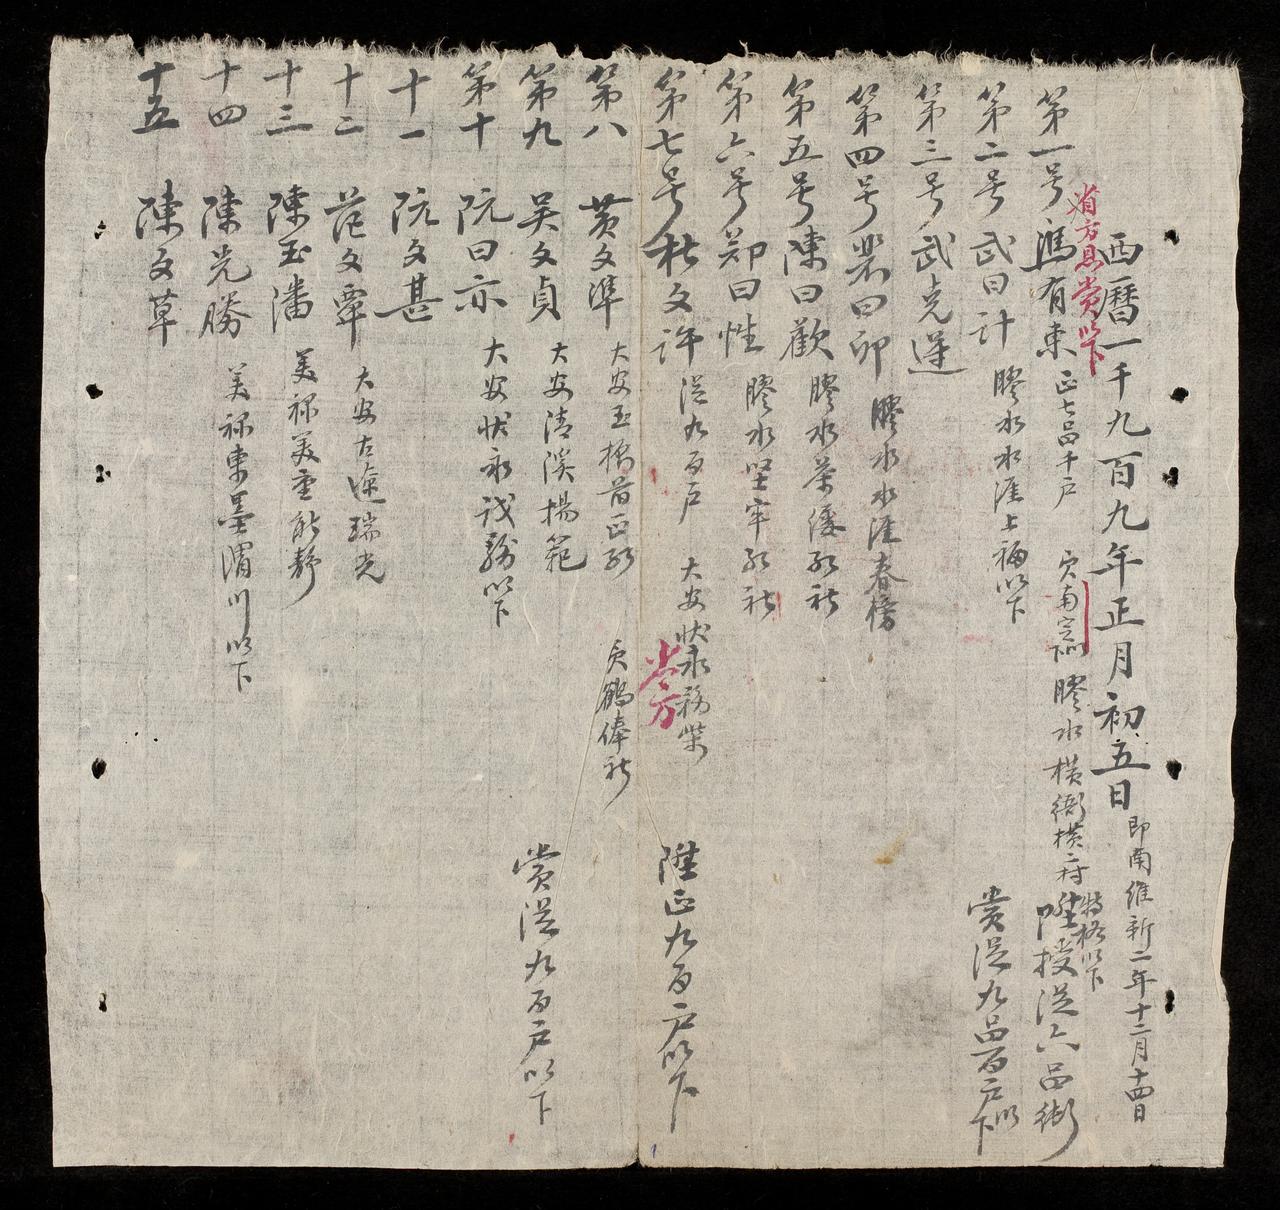 西曆一千九百九年正月初五日 即南維新二年十二月十四日
有方馬賞以下
第一号 馮有東 正七品千戶 膠水橫衙橫府 特格以下 陞授從六品銜
第二号 武曰計 膠水水涯上福以下 賞從九品百戶以下
第三号 武克運
第四号 裴曰卯 膠水水涯春榜
第五号 陳曰歡 膠水茶縷社
第六号 鄭曰性 膠水堅牢社
第七号 杜文許 從九百戶 大安狀永務柴 陞正九百戶以下
賞方
第八 黃文準 大安玉橋首正 鶴俸社
第九 吳文貞 大安清溪楊範 賞從九百戶以下
第十 阮曰亦 大安狀永以下
十一 阮文甚
十二 范文覃 大安古瑞光
十三 陳玉潘 美祿美重能靜
十四 陳光勝 美祿東墨渭川以下
十五 陳文草